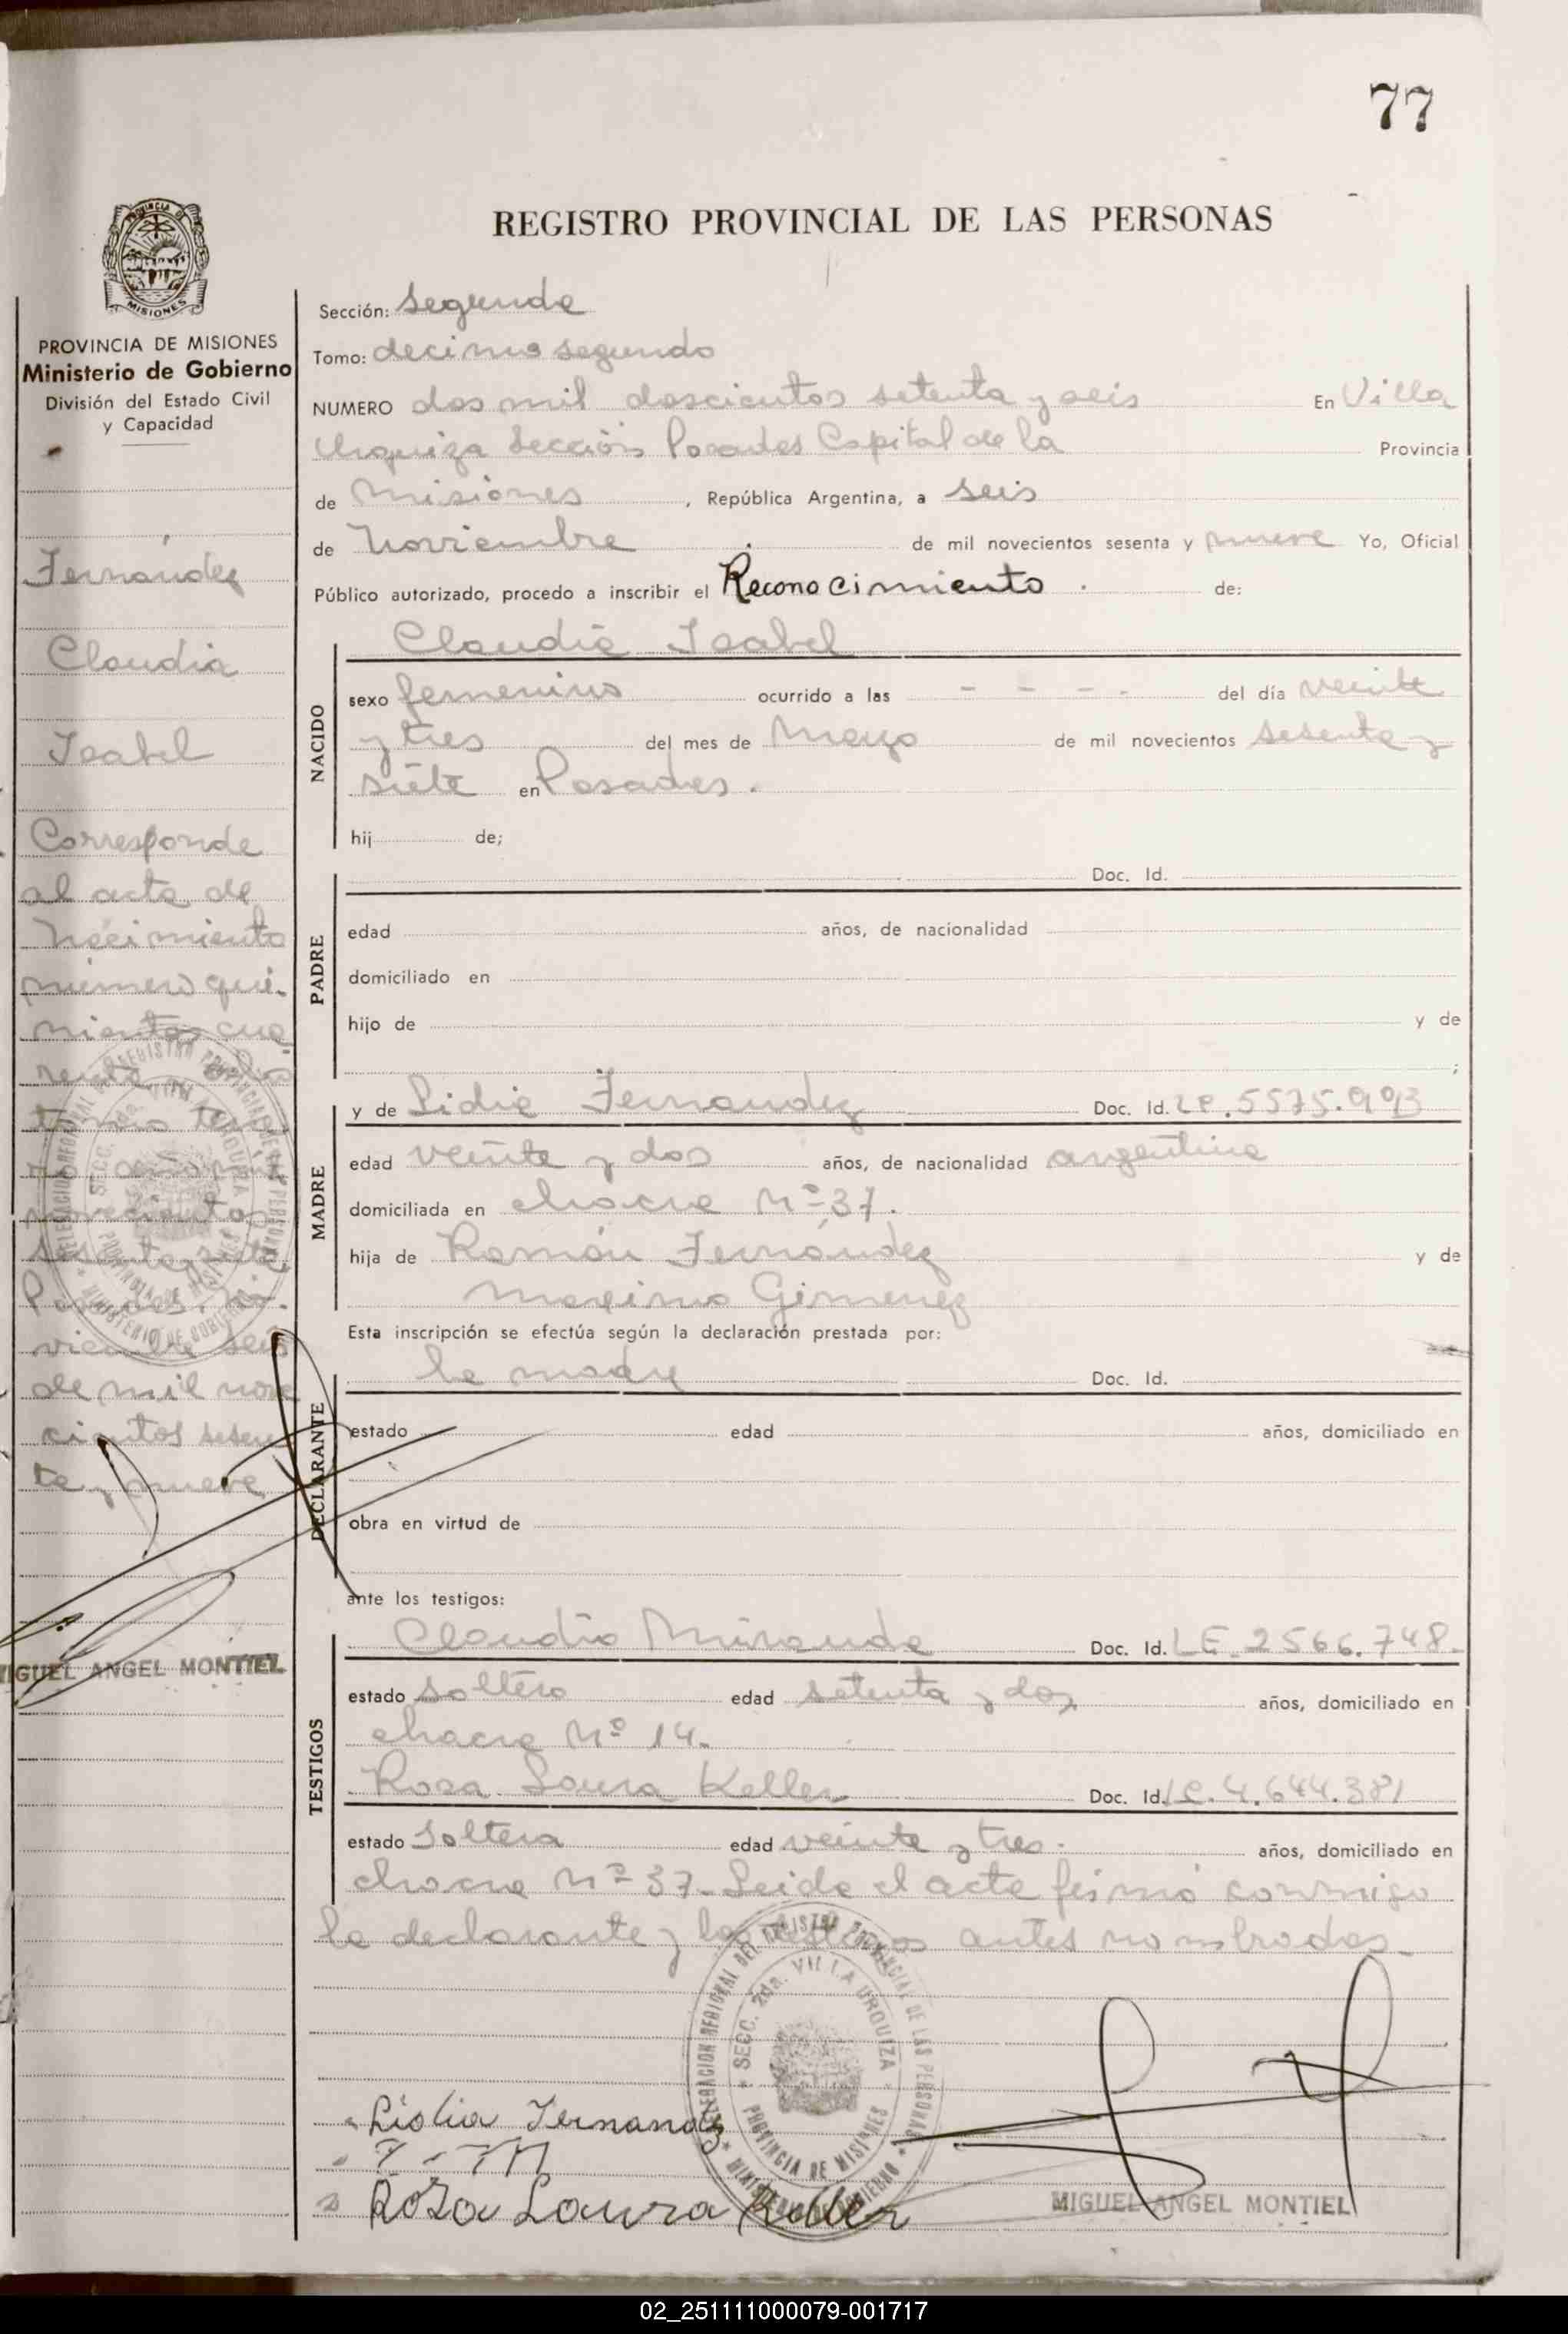 77
PROVINCIA DE
MISIONES
PROVINCIA DE MISIONES
Ministerio de Gobierno
División del Estado Civil
y Capacidad
Fernández
Claudia
Isabel
Corresponde
al acta de
Nacimiento
número qui-
nientos cua
renta
tomo
novecientos
sesenta y siete
Posadas, No-
viembre seis
de mil nove
cientos sesen
ta y nueve
MIGUEL ANGEL MONTIEL
REGISTRO PROVINCIAL DE LAS PERSONAS
Sección: Segunda
Tomo: decimo segundo
NUMERO dos mil doscientos setenta y seis En Villa
Urquiza Sección Posadas Capital de la Provincia
de Misiones, República Argentina, a seis
de Noviembre de mil novecientos sesenta y nueve Yo, Oficial
Público autorizado, procedo a inscribir el Reconocimiento de:
NACIDO
Claudia Isabel
sexo femenino ocurrido a las - - - - del día veinte
y tres del mes de Mayo de mil novecientos sesenta y
siete en Posadas.
hij de;
PADRE
Doc. Id.
edad años, de nacionalidad
domiciliado en
hijo de y de
;
MADRE
y de Lidia Fernandez Doc. Id. LC. 5575.993
edad veinte y dos años, de nacionalidad argentina
domiciliada en chacra Nº 37.
hija de Ramón Fernández y de
Maxima Gimenez
Esta inscripción se efectúa según la declaración prestada por:
DECLARANTE
la madre Doc. Id.
estado edad años, domiciliado en
obra en virtud de
ante los testigos:
TESTIGOS
Claudio Miranda Doc. Id. LE. 2566.748.
estado soltero edad setenta y dos años, domiciliado en
chacra Nº 14.
Rosa Laura Keller Doc. Id. LC. 4.644.381
estado soltera edad veinte y tres. años, domiciliado en
chacra Nº 37. Leida el acta firmó conmigo
la declarante y los testigos antes nombrados.
DELEGACION REGIONAL DEL REGISTRO PROVINCIAL DE LAS PERSONAS
SECC. 2da. VILLA URQUIZA
PROVINCIA DE MISIONES
MINISTERIO DE GOBIERNO
Lidia Fernandez
Rosa Laura Keller
MIGUEL ANGEL MONTIEL
02_251111000079-001717